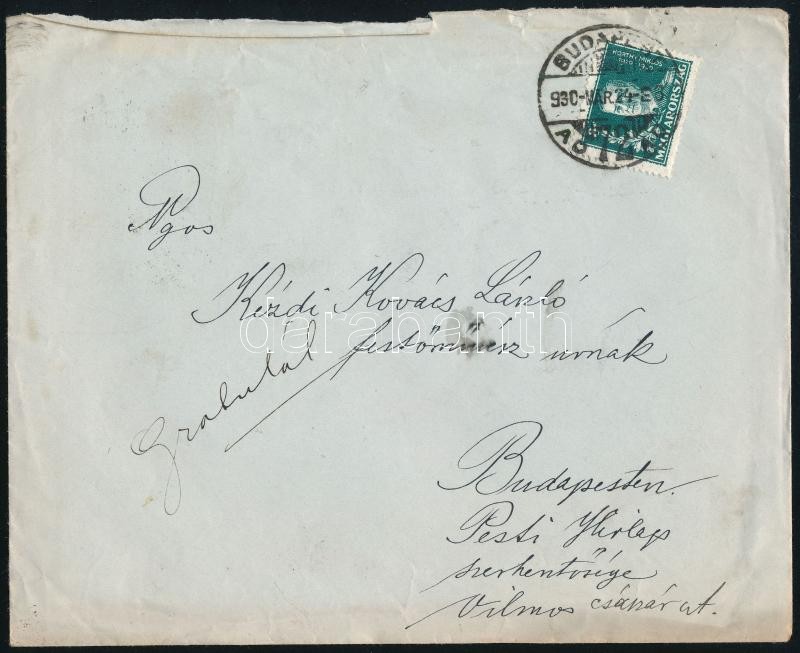 BUDAPEST
930-MAR.24-
HORTHY MIKLÓS
1920-1930
MAGYARORSZÁG
Ngos
Kézdi Kovács László
festőművész urnák
Gratulál
Budapesten.
Pesti Hirlap
szerkentősége
Vilmos császár út.
darabanth